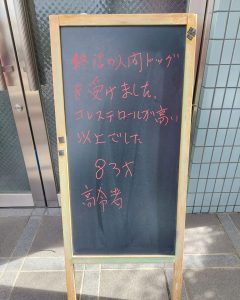 終活の人間ドック
を受けました。
コレステロールが高い
以上でした
83才
高齢者